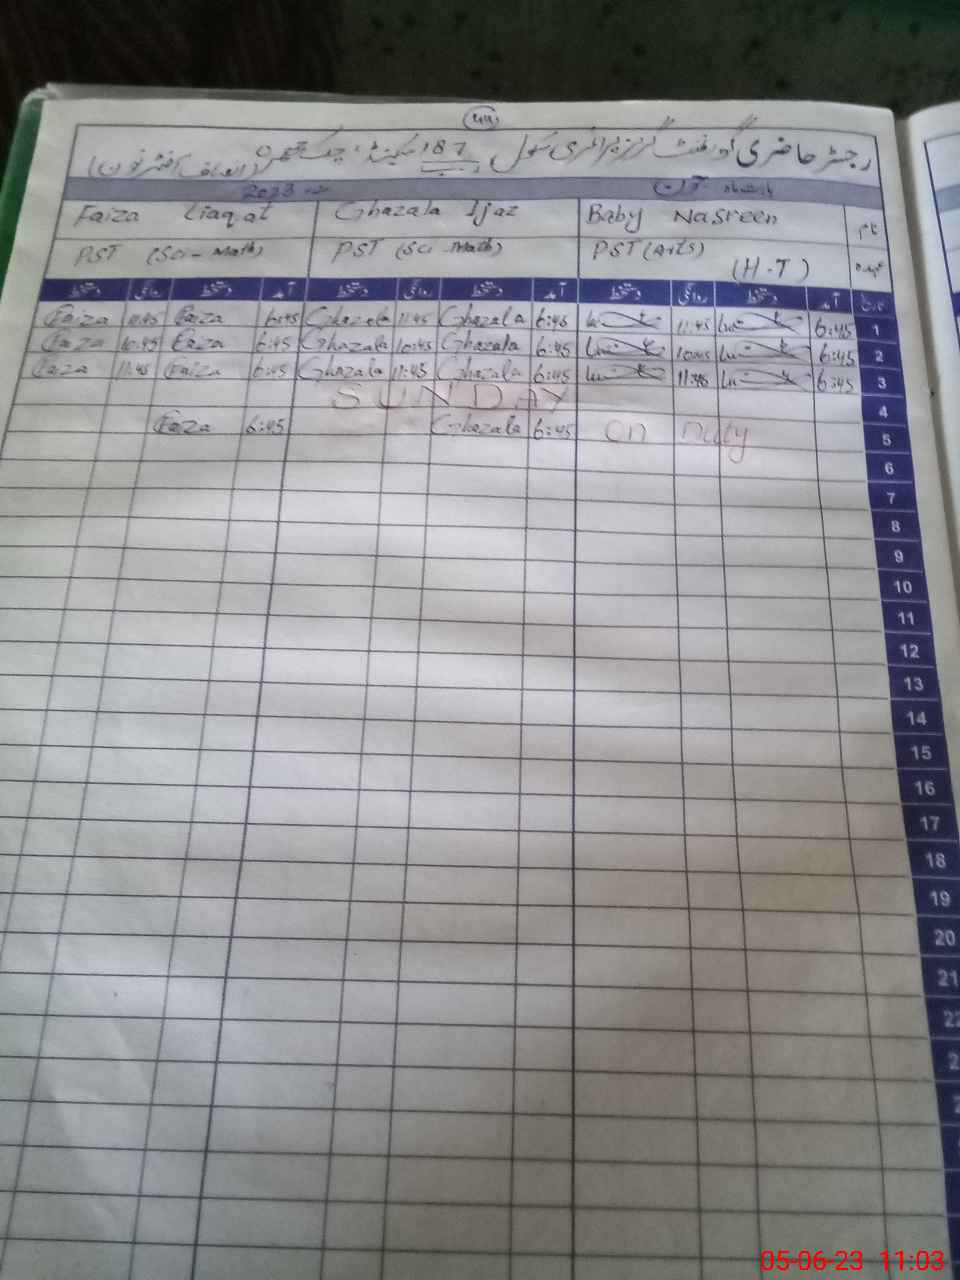 رجسٹر حاضری گورنمنٹ گرلز پرائمری سکول 187 ر۔ب سیکنڈ، چک
2023
Faiza Liaqat Ghazala Ijaz Baby Nasreen نام
PST (Sci-Math) PST (Sci-Math) PST (Arts) (H.T) عہدہ
دستخط روانگی دستخط آمد دستخط روانگی دستخط آمد دستخط روانگی دستخط آمد تاریخ
Faiza 11:45 Faiza 6:45 Ghazala 11:45 Ghazala 6:45 11:45 6:45 1
Faiza 10:45 Faiza 6:45 Ghazala 10:45 Ghazala 6:45 10:45 6:45 2
Faiza 11:45 Faiza 6:45 Ghazala 11:45 Ghazala 6:45 11:45 6:45 3
SUNDAY 4
Faiza 6:45 Ghazala 6:45 On Duty 5
6
7
8
9
10
11
12
13
14
15
16
17
18
19
20
21
05-06-23 11:03